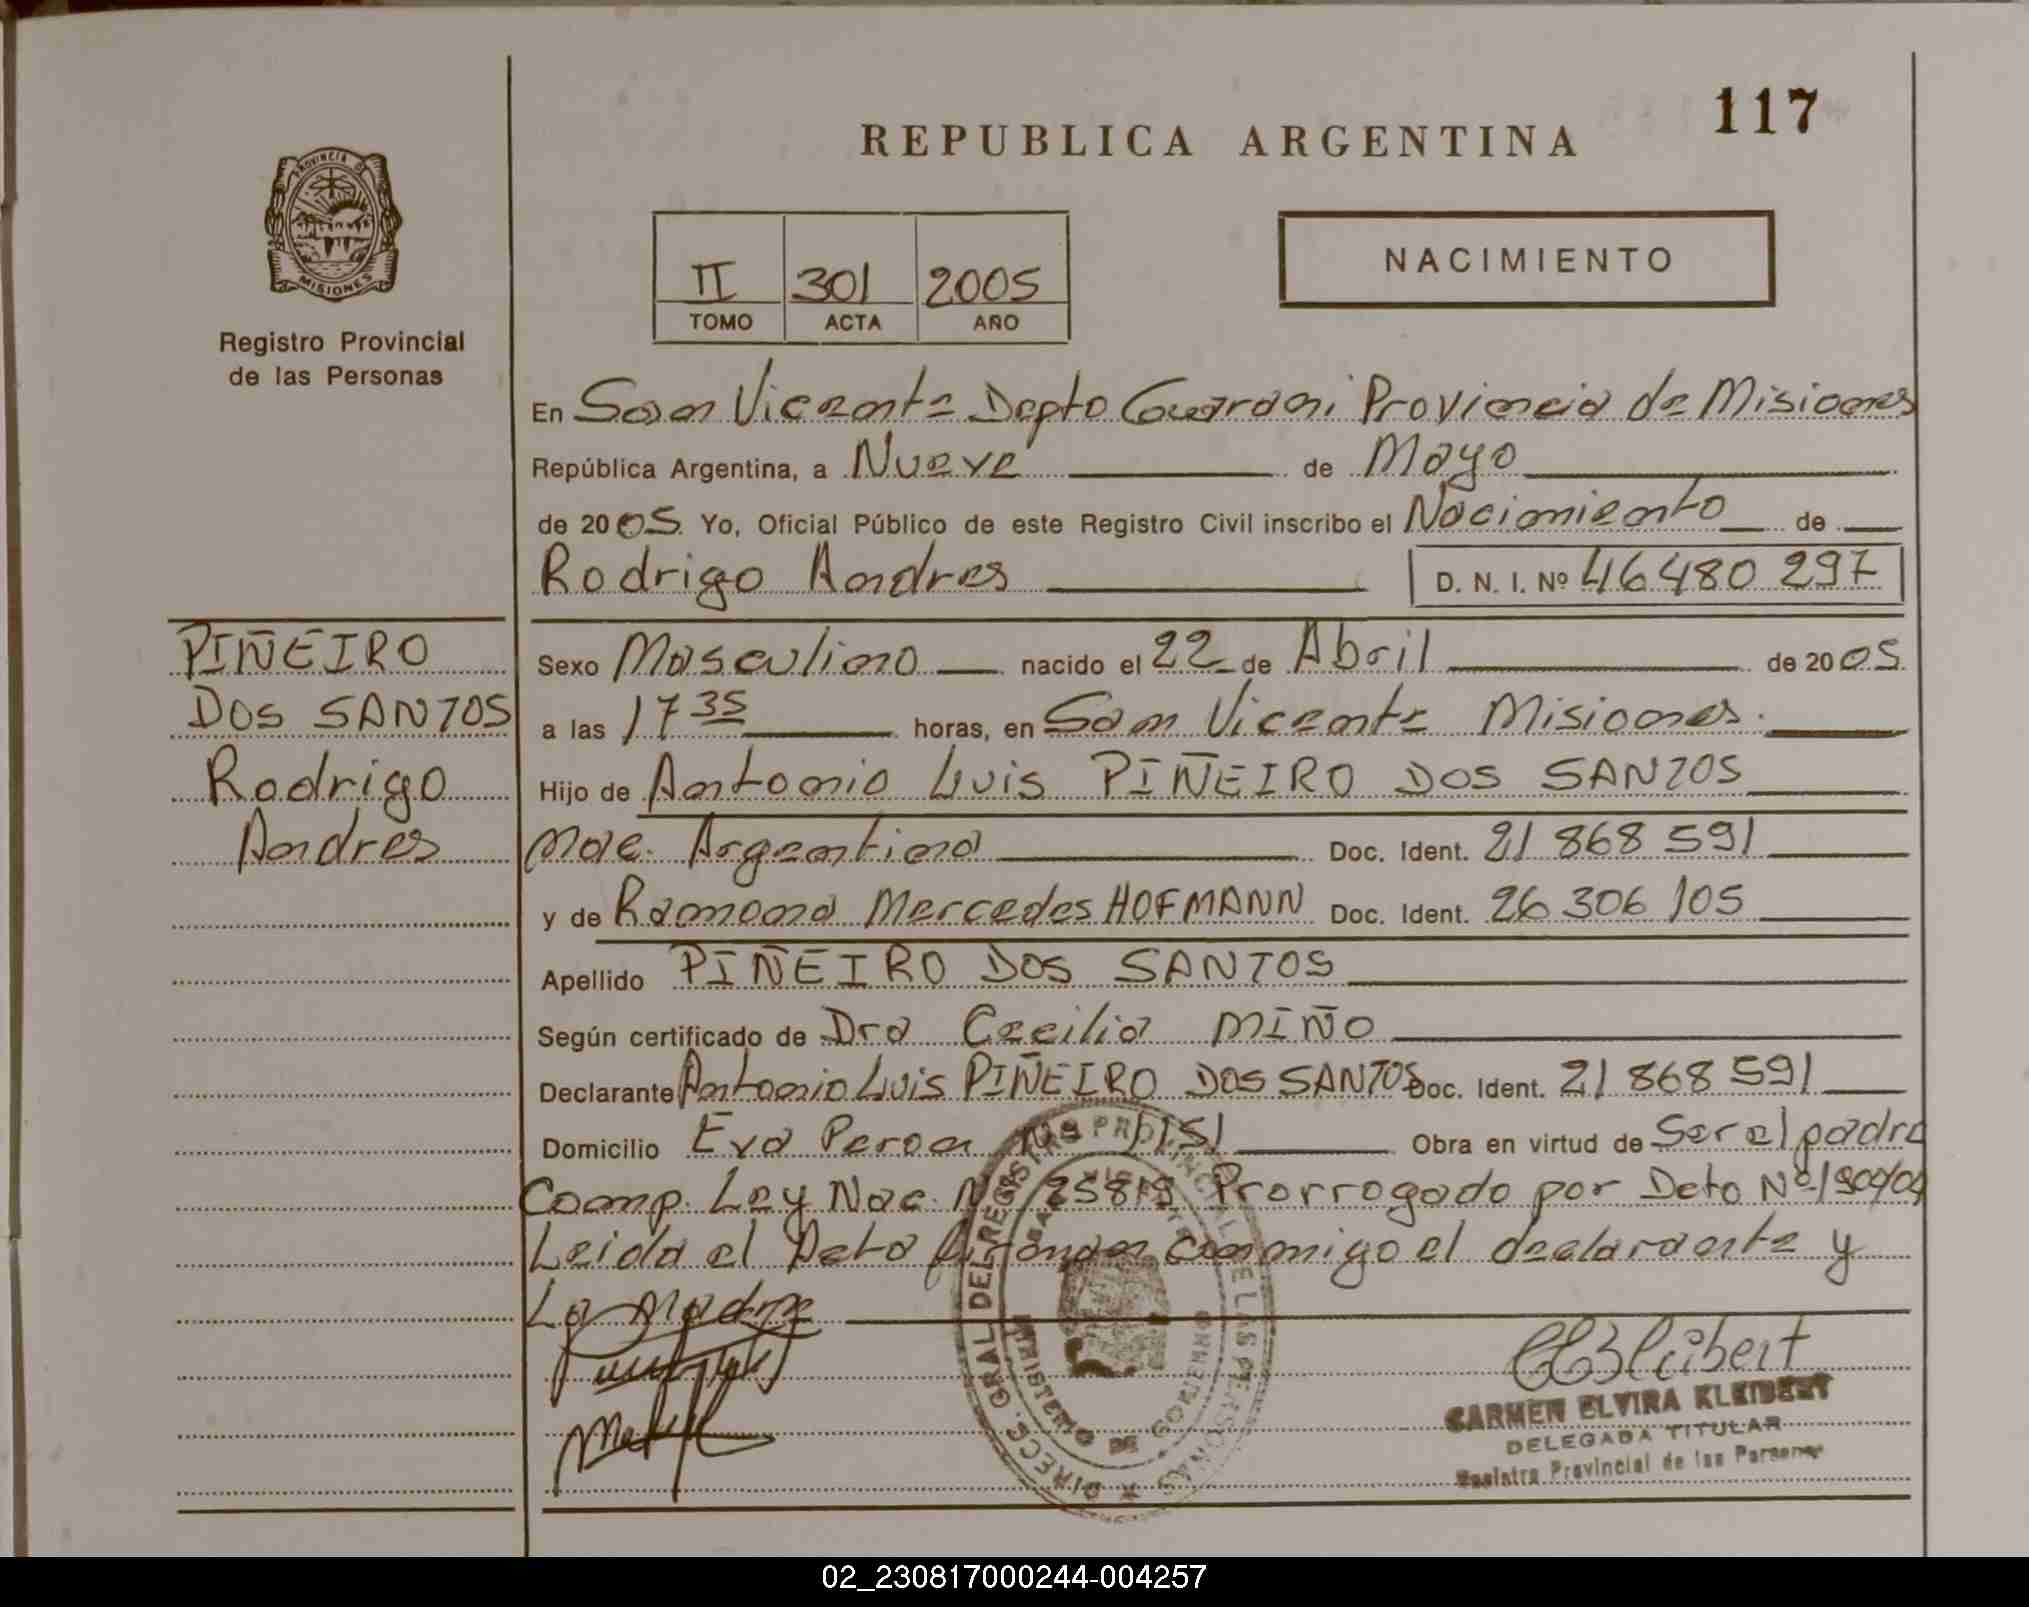 117
REPUBLICA ARGENTINA
PROVINCIA DE
MISIONES
Registro Provincial
de las Personas
NACIMIENTO
II 301 2005
TOMO ACTA AÑO
En San Vicente Depto Guarani Provincia de Misiones
República Argentina, a Nueve de Mayo
de 2005 Yo, Oficial Público de este Registro Civil inscribo el Nacimiento de
Rodrigo Andres D. N. I. Nº 46480 297
PIÑEIRO
DOS SANTOS
Rodrigo
Andres
Sexo Masculino nacido el 22 de Abril de 2005
a las 17 35 horas, en San Vicente Misiones.
Hijo de Antonio Luis PIÑEIRO DOS SANTOS
Nac. Argentina Doc. Ident. 21 868 591
y de Ramona Mercedes HOFMANN Doc. Ident. 26 306 105
Apellido PIÑEIRO DOS SANTOS
Según certificado de Dra Cecilia MIÑO
Declarante Antonio Luis PIÑEIRO DOS SANTOS Doc. Ident. 21 868 591
Domicilio Eva Peron Obra en virtud de Ser el padre
Comp. Ley Nac. Nº 25819 Prorrogado por Deto Nº
Leida el Acta firman conmigo el declarante y
La Madre
DIRECC. GRAL DEL REGISTRO PROVINCIAL DE LAS PERSONAS
MINISTERIO DE GOBIERNO
CARMEN ELVIRA KLEIBERT
DELEGADA TITULAR
Registro Provincial de las Personas
02_230817000244-004257